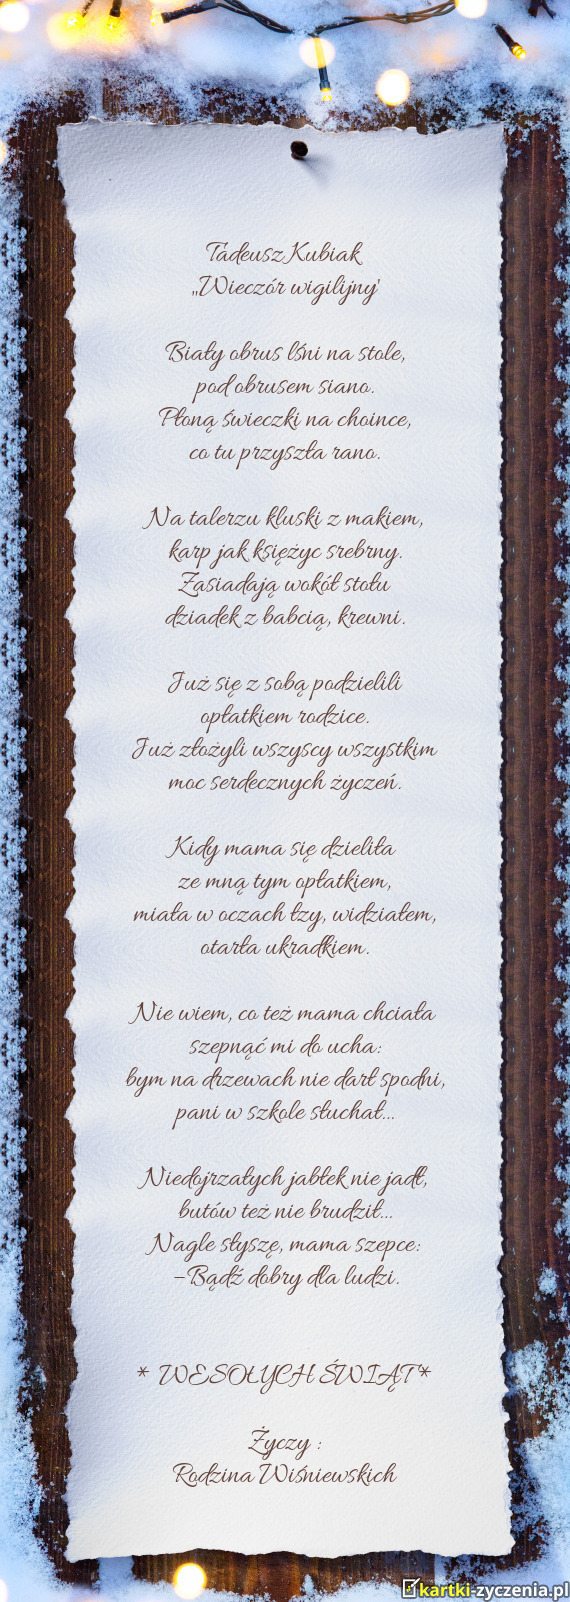 Tadeusz Kubiak
„Wieczór wigilijny"
Biały obrus lśni na stole,
pod obrusem siano.
Płoną świeczki na choince,
co tu przyszła rano.
Na talerzu kluski z makiem,
karp jak księżyc srebrny.
Zasiadają wokół stołu
dziadek z babcią, krewni.
Już się z sobą podzielili
opłatkiem rodzice.
Już złożyli wszyscy wszystkim
moc serdecznych życzeń.
Kidy mama się dzieliła
ze mną tym opłatkiem,
miała w oczach łzy, widziałem,
otarła ukradkiem.
Nie wiem, co też mama chciała
szepnąć mi do ucha:
bym na drzewach nie darł spodni,
pani w szkole słuchał...
Niedojrzałych jabłek nie jadł,
butów też nie brudził...
Nagle słyszę, mama szepce:
–Bądź dobry dla ludzi.
* WESOŁYCH ŚWIĄT *
Życzy :
Rodzina Wiśniewskich
kartki-zyczenia.pl